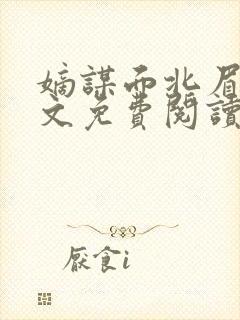 嫡謀而北眉
文免費閱讀
厭食i